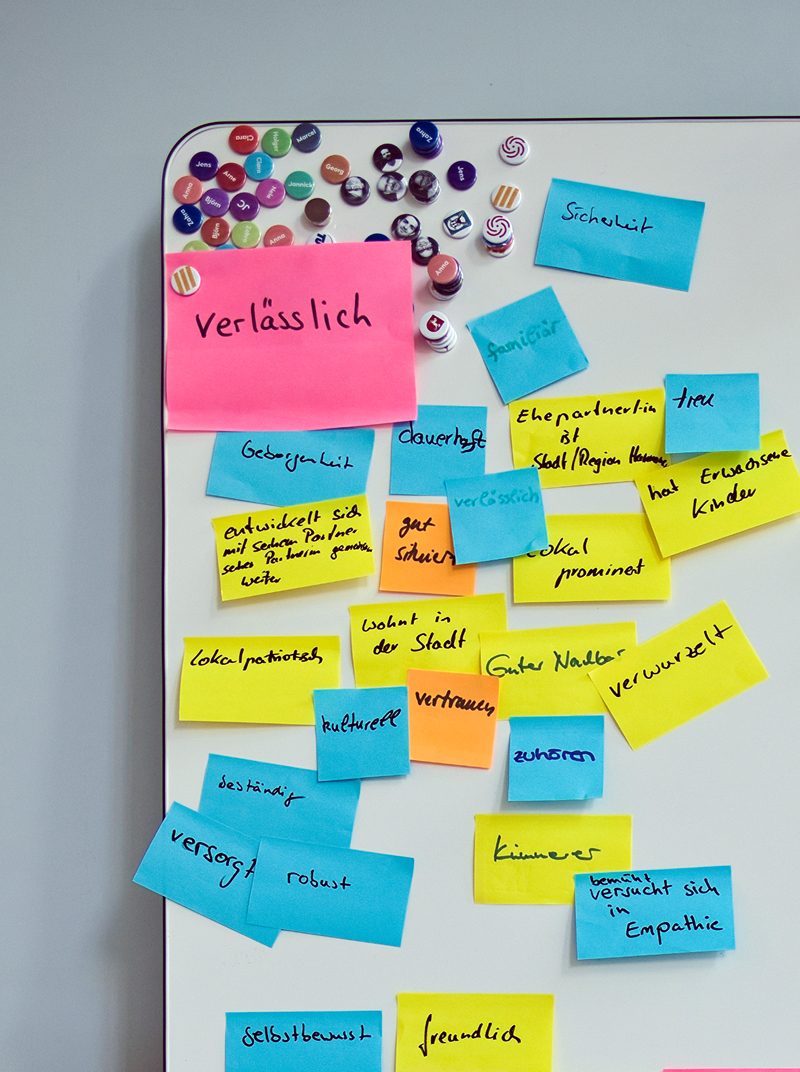 Clara
Holger
Marcel
Jens
Arne
Clara
Georg
Jens
Zahra
Anna
Björn
JC
Nele
Jannick
Zahra
Björn
Zahra
Anna
Anna
Sicherheit
verlässlich
familiär
Geborgenheit
dauerhaft
Ehepartner(-in
ist
Stadt/Region
treu
hat Erwachsene
Kinder
verlässlich
entwickelt sich
mit seinem Partner
seiner Partnerin gemeinsam
weiter
gut
situiert
lokal
prominent
wohnt in
der Stadt
Lokalpatriotisch
Guter Nachbar
verwurzelt
kulturell
vertrauen
zuhören
beständig
versorgt
robust
Kümmerer
bemüht
versucht sich
in
Empathie
selbstbewusst
freundlich